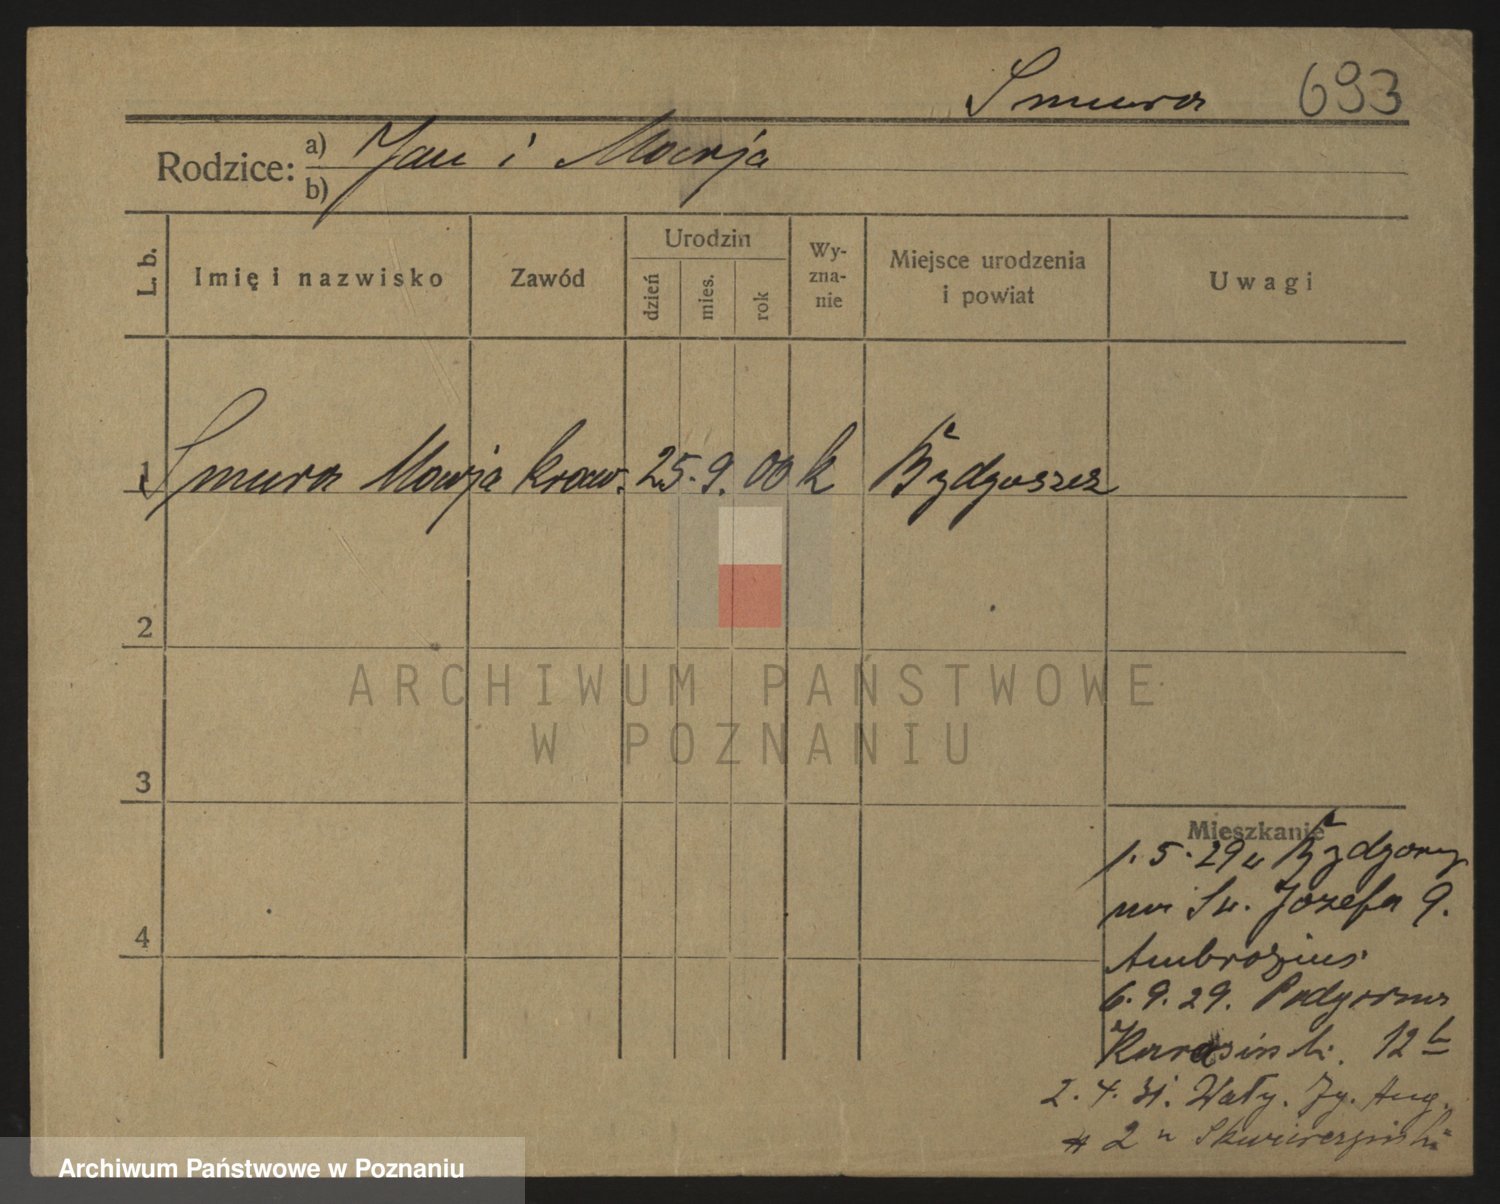 Smura 693
Rodzice: a) Jan i Marja
b)
L. b. Imię i nazwisko Zawód Urodzin dzień mies. rok Wy-zna-nie Miejsce urodzenia i powiat Uwagi
1 Smura Marja kraw. 25. 9. 00 k Bydgoszcz
2
ARCHIWUM PAŃSTWOWE
W POZNANIU
3
Mieszkanie
1. 5. 29
Św. Józefa 9.
Ambrozius
4
6. 9. 29. Podgórna
12 b
2. 4. 31. Wały. Zy. Aug.
2
Archiwum Państwowe w Poznaniu